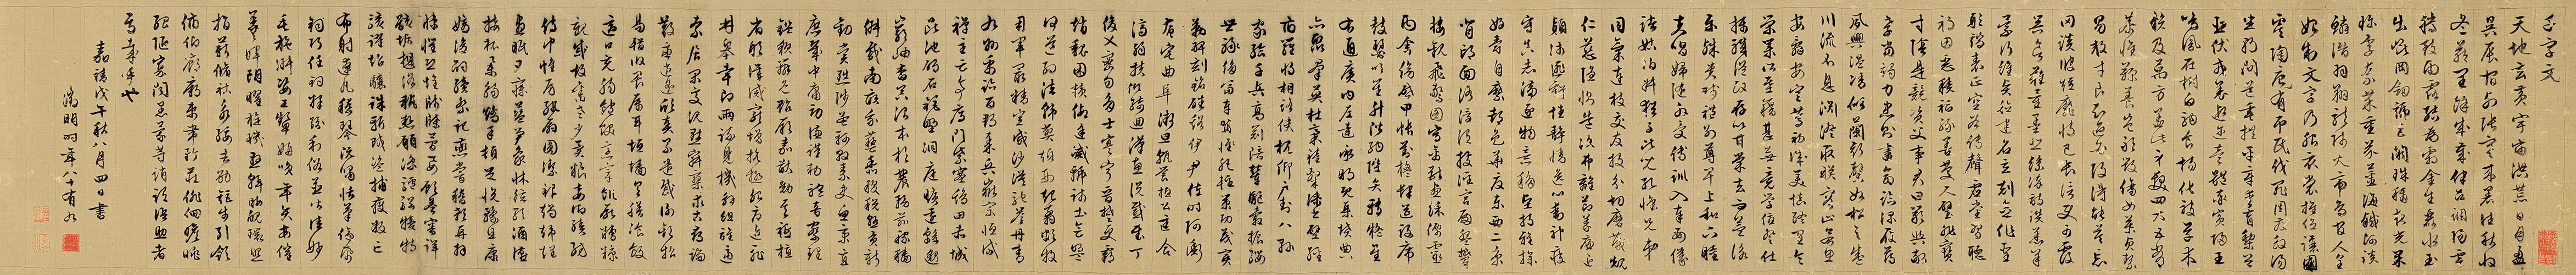 千字文
天地玄黃宇宙洪荒日月盈
昃辰宿列張寒來暑往秋收
冬藏閏餘成歲律呂調陽雲
騰致雨露結為霜金生麗水玉
出崑岡劍號巨闕珠稱夜光果
珍李柰菜重芥薑海鹹河淡
鱗潛羽翔龍師火帝鳥官人皇
始制文字乃服衣裳推位讓國
有虞陶唐弔民伐罪周發殷湯
坐朝問道垂拱平章愛育黎首
臣伏戎羌遐邇壹體率賓歸王
鳴鳳在樹白駒食場化被草木
賴及萬方蓋此身髮四大五常
恭惟鞠養豈敢毀傷女慕貞絜
男效才良知過必改得能莫忘
罔談彼短靡恃己長信使可覆
器欲難量墨悲絲染詩讚羔羊
景行維賢剋念作聖德建名立
形端表正空谷傳聲虛堂習聽
禍因惡積福緣善慶尺璧非寶
寸陰是競資父事君曰嚴與敬
孝當竭力忠則盡命臨深履薄
夙興溫凊似蘭斯馨如松之盛
川流不息淵澄取映容止若思
言辭安定篤初誠美慎終宜令
榮業所基籍甚無竟學優登仕
攝職從政存以甘棠去而益詠
樂殊貴賤禮別尊卑上和下睦
夫唱婦隨外受傅訓入奉母儀
諸姑伯叔猶子比兒孔懷兄弟
同氣連枝交友投分切磨箴規
仁慈隱惻造次弗離節義廉退
顛沛匪虧性靜情逸心動神疲
守真志滿逐物意移堅持雅操
好爵自縻都邑華夏東西二京
背邙面洛浮渭據涇宮殿盤鬱
樓觀飛驚圖寫禽獸畫綵仙靈
丙舍傍啟甲帳對楹肆筵設席
鼓瑟吹笙升階納陛弁轉疑星
右通廣內左達承明既集墳典
亦聚群英杜稿鍾隸漆書壁經
府羅將相路俠槐卿戶封八縣
家給千兵高冠陪輦驅轂振纓
世祿侈富車駕肥輕策功茂實
勒碑刻銘磻溪伊尹佐時阿衡
奄宅曲阜微旦孰營桓公匡合
濟弱扶傾綺迴漢惠說感武丁
俊乂密勿多士寔寧晉楚更霸
趙魏困橫假途滅虢踐土會盟
何遵約法韓弊煩刑起翦頗牧
用軍最精宣威沙漠馳譽丹青
九州禹跡百郡秦并嶽宗恆岱
禪主云亭雁門紫塞雞田赤城
昆池碣石鉅野洞庭曠遠緜邈
巖岫杳冥治本於農務茲稼穡
俶載南畝我藝黍稷稅熟貢新
勸賞黜陟孟軻敦素史魚秉直
庶幾中庸勞謙謹敕聆音察理
鑑貌辨色貽厥嘉猷勉其祗植
省躬譏誡寵增抗極殆辱近恥
林皋幸即兩疏見機解組誰逼
索居閒處沉默寂寥求古尋論
散慮逍遙欣奏累遣慼謝歡招
易輶攸畏屬耳垣牆具膳飡飯
適口充腸飽飫烹宰飢厭糟糠
親戚故舊老少異糧妾御績紡
侍巾帷房紈扇圓潔銀燭煒煌
晝眠夕寐藍筍象床絃歌酒讌
接杯舉觴矯手頓足悅豫且康
嫡後嗣續祭祀烝嘗稽顙再拜
悚懼恐惶牋牒簡要顧答審詳
骸垢想浴執熱願涼驢騾犢特
駭躍超驤誅斬賊盜捕獲叛亡
布射遼丸嵇琴阮嘯恬筆倫紙
鈞巧任釣釋紛利俗並皆佳妙
毛施淑姿工顰妍笑年矢每催
曦暉朗曜璇璣懸斡晦魄環照
指薪脩祜永綏吉劭矩步引領
俯仰廊廟束帶矜莊徘徊瞻眺
孤陋寡聞愚蒙等誚謂語助者
焉哉乎也
嘉靖戊午秋八月四日書
徵明時年八十有九